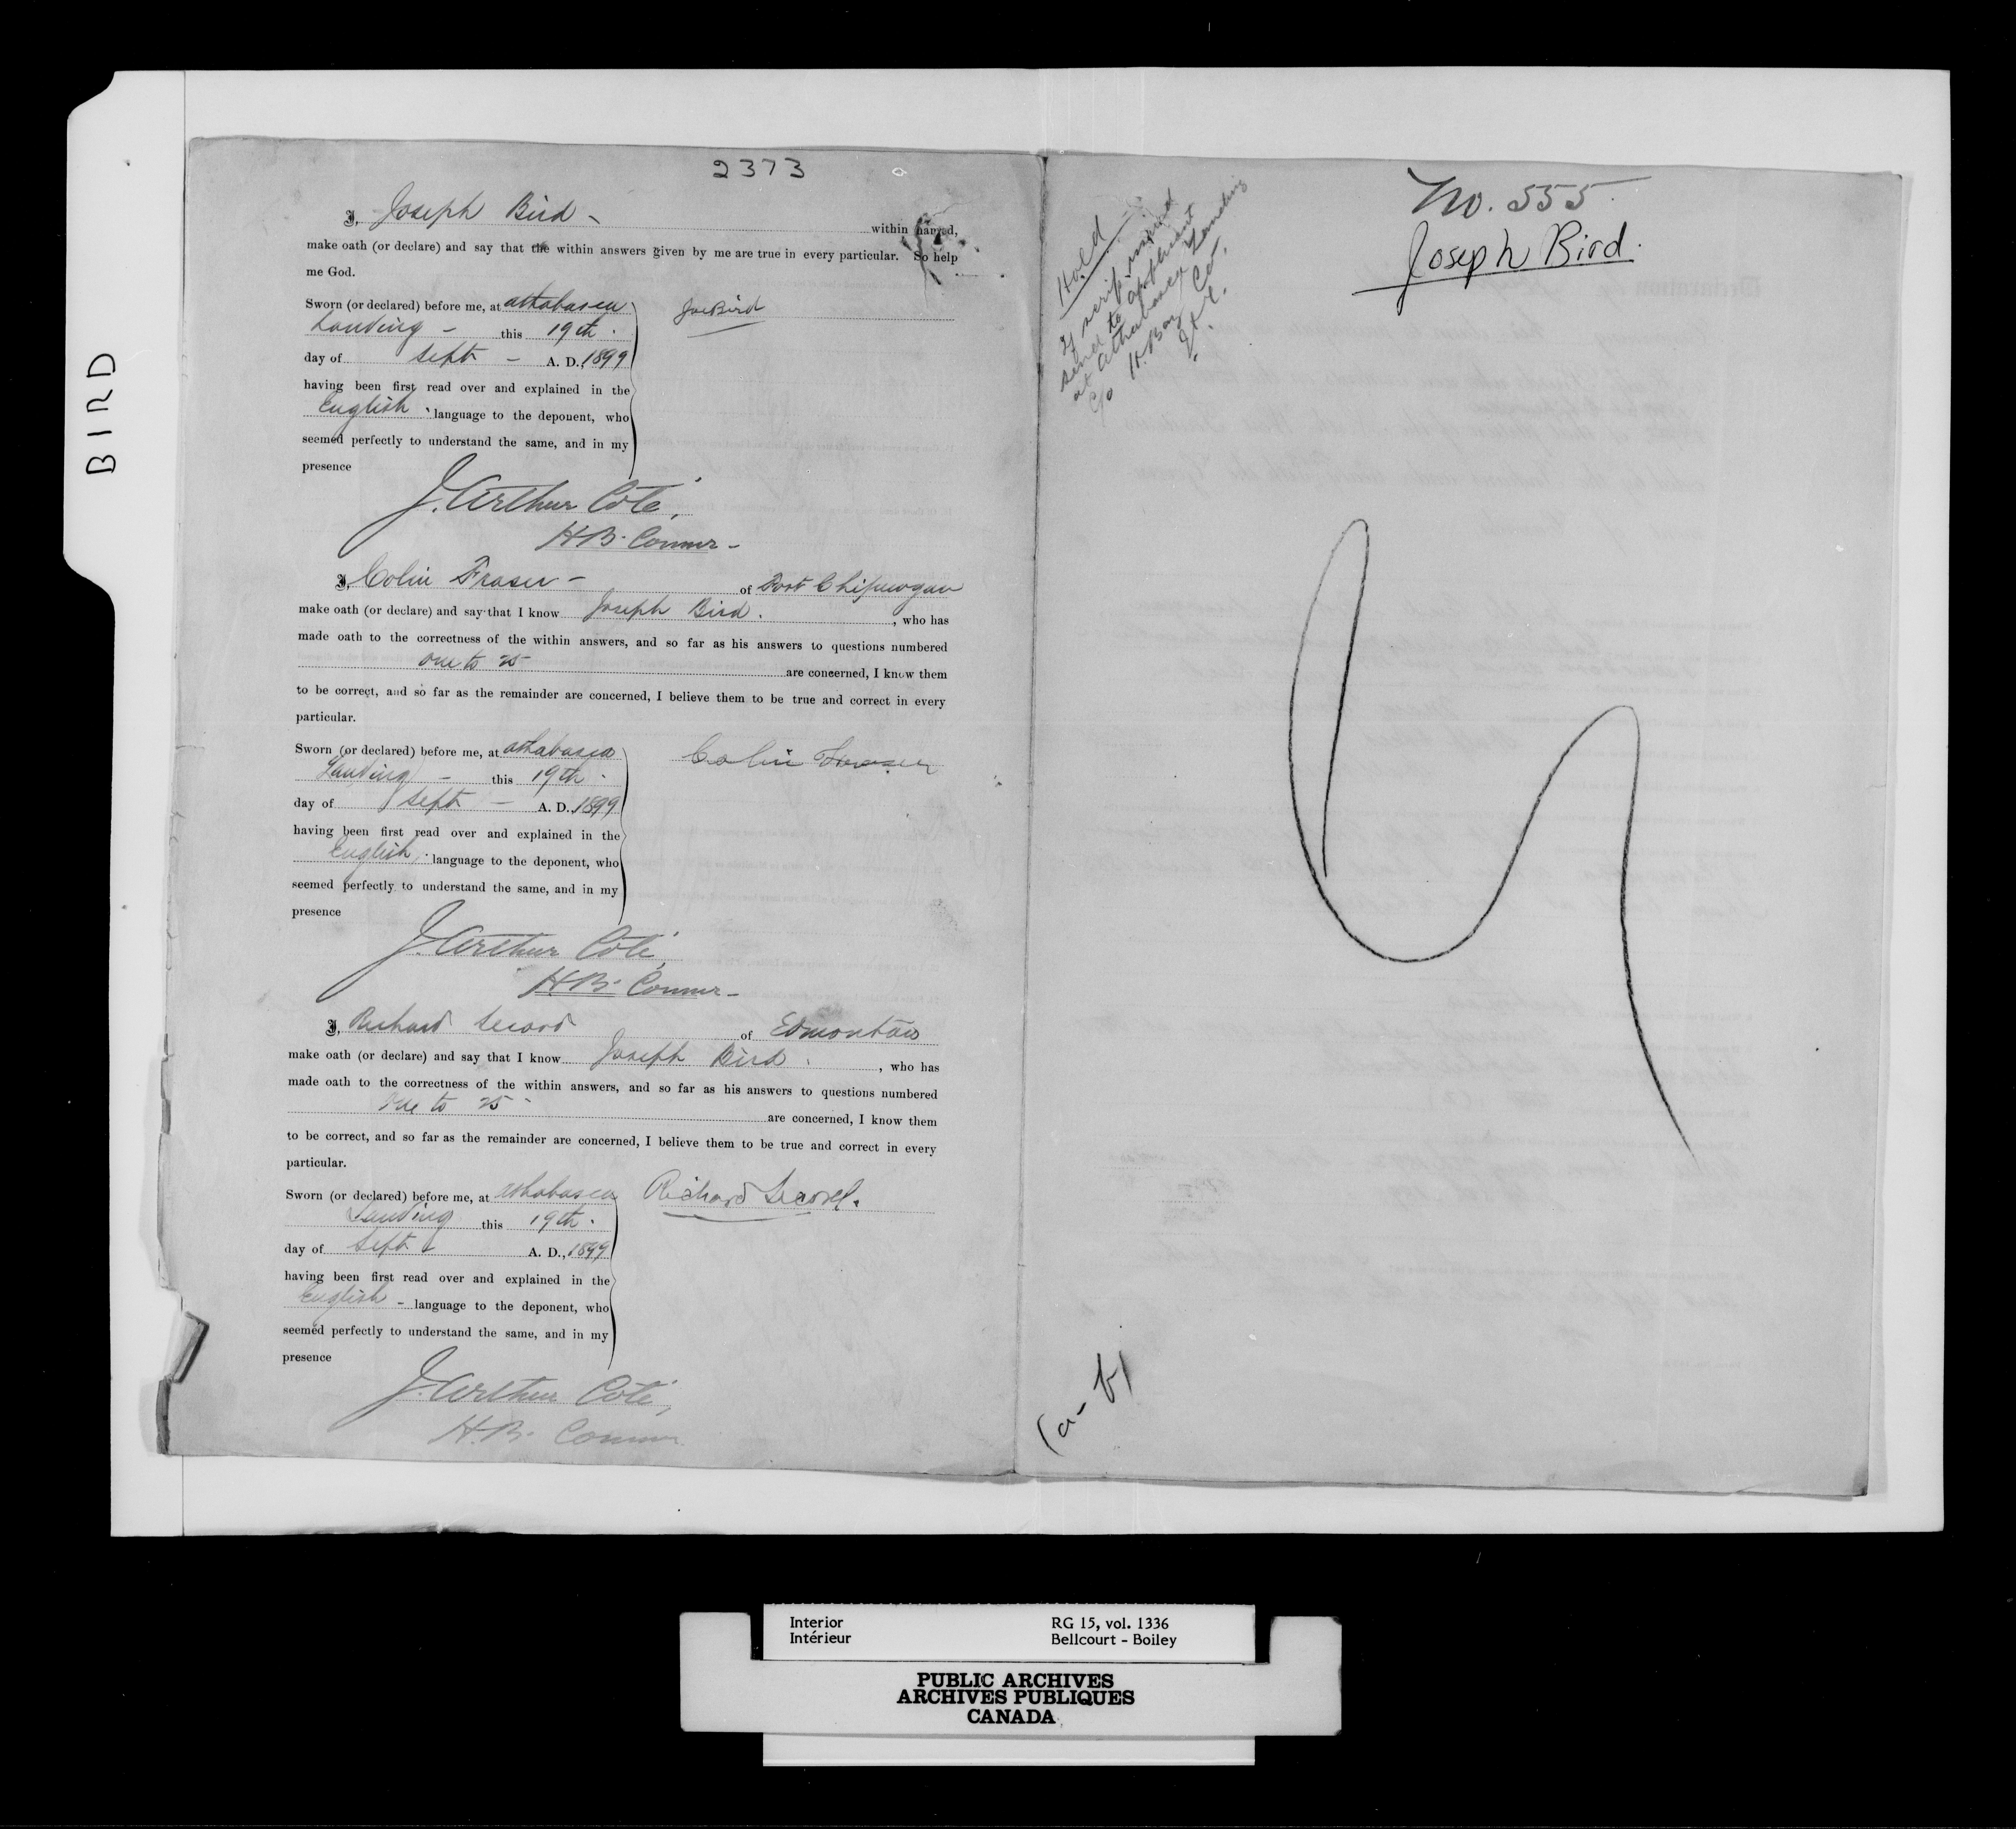 BIRD
2373
I, Joseph Bird - within named,
make oath (or declare) and say that the within answers given by me are true in every particular. So help
me God.
Sworn (or declared) before me, at Athabasca
Landing - this 19th.
day of Sept - A. D. 1899
having been first read over and explained in the
English language to the deponent, who
seemed perfectly to understand the same, and in my
presence
Joe Bird
J. Arthur Coté,
H.B. Commr -
I, Colin Fraser - of Fort Chipewyan
make oath (or declare) and say that I know Joseph Bird. , who has
made oath to the correctness of the within answers, and so far as his answers to questions numbered
one to 25 are concerned, I know them
to be correct, and so far as the remainder are concerned, I believe them to be true and correct in every
particular.
Sworn (or declared) before me, at Athabasca
Landing - this 19th.
day of Sept - A. D. 1899
having been first read over and explained in the
English language to the deponent, who
seemed perfectly to understand the same, and in my
presence
Colin Fraser
J. Arthur Coté,
H.B. Commr -
I, Richard Secord of Edmonton
make oath (or declare) and say that I know Joseph Bird. , who has
made oath to the correctness of the within answers, and so far as his answers to questions numbered
One to 25 - are concerned, I know them
to be correct, and so far as the remainder are concerned, I believe them to be true and correct in every
particular.
Sworn (or declared) before me, at Athabasca
Landing this 19th.
day of Sept A. D., 1899
having been first read over and explained in the
English - language to the deponent, who
seemed perfectly to understand the same, and in my
presence
Richard Secord.
J. Arthur Coté,
H.B. Commr
Hold
If scrip issued
send to applicant
at Athabasca Landing
c/o H. Bay Co.
No. 555
Joseph Bird.
(a-b)
Interior
Intérieur
RG 15, vol. 1336
Bellcourt - Boiley
PUBLIC ARCHIVES
ARCHIVES PUBLIQUES
CANADA